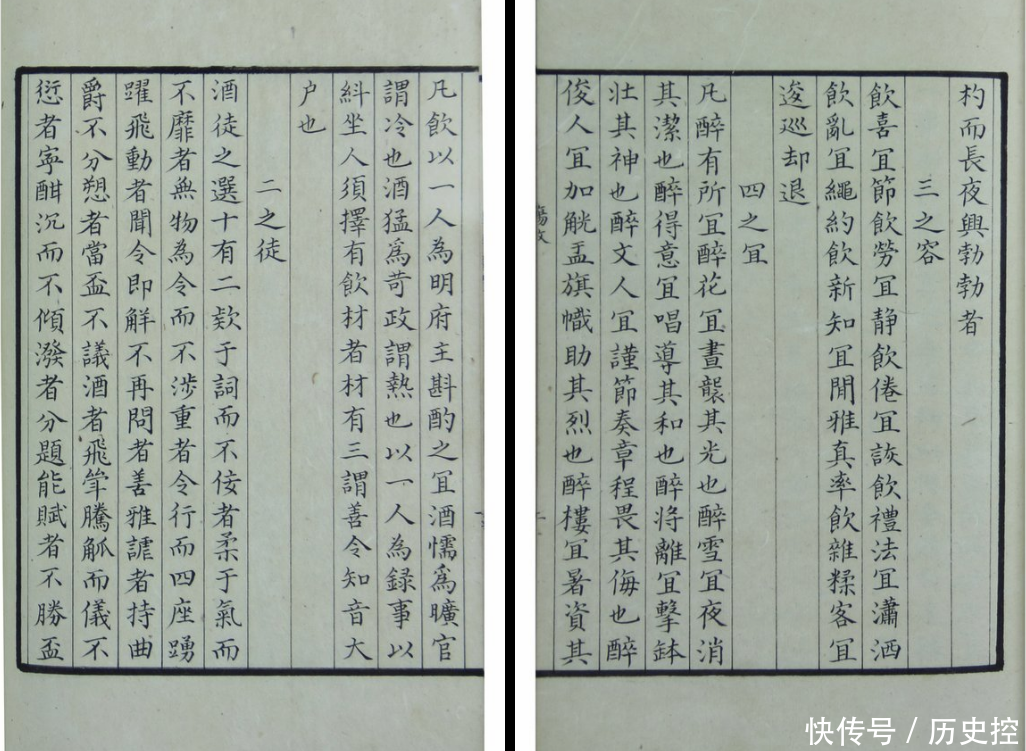 凡飲以一人為明府主斟酌之冝酒懦爲曠官
謂冷也酒猛爲苛政謂熱也以一人為録事以
糾坐人須擇有飲材者材有三謂善令知音大
户也
二之徒
酒徒之選十有二欵于詞而不佞者柔于氣而
不靡者無物為令而不涉重者令行而四座踴
躍飛動者聞令即解不再問者善雅謔者持曲
爵不分愬者當盃不議酒者飛斝騰觚而儀不
愆者寧酣沉而不傾潑者分題能賦者不勝盃
杓而長夜興勃勃者
三之容
飲喜冝節飲勞冝静飲倦冝詼飲禮法冝瀟洒
飲亂冝繩約飲新知冝閒雅真率飲雜糅客冝
逡廵却退
四之冝
凡醉有所冝醉花冝晝襲其光也醉雪冝夜消
其潔也醉得意冝唱導其和也醉将離冝擊鉢
壮其神也醉文人冝謹節奏章程畏其侮也醉
俊人冝加觥盂旗幟助其烈也醉樓冝暑資其
快传号 / 历史控